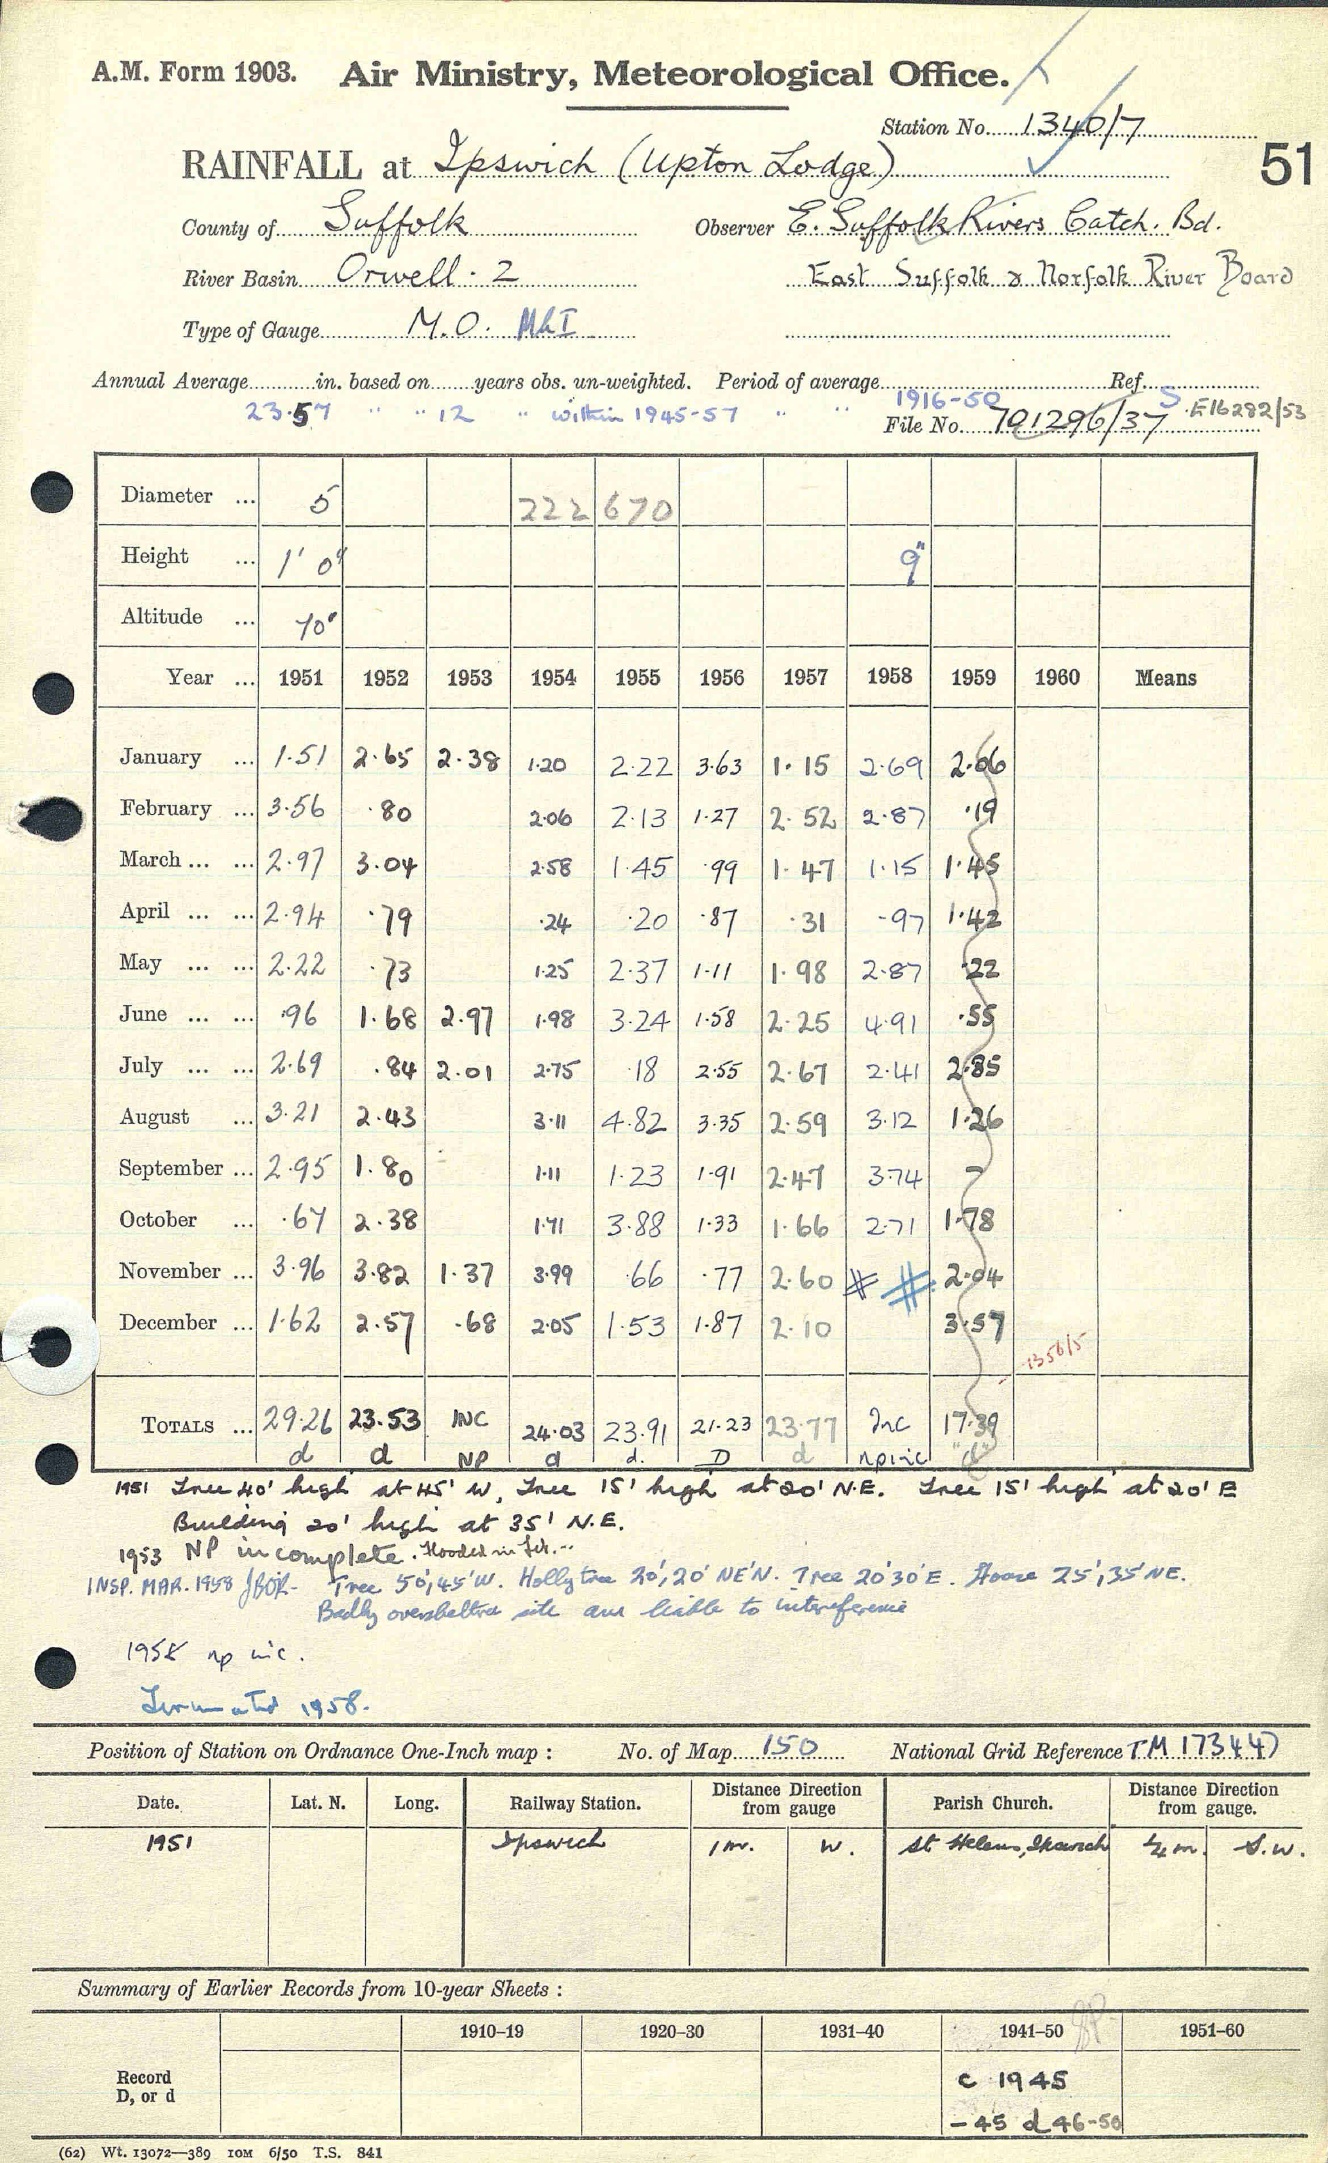 A.M. Form 1903. Air Ministry, Meteorological Office.
Station No. 1340/7
RAINFALL at Ipswich (Upton Lodge)
51
County of Suffolk Observer E. Suffolk Rivers Catch. Bd.
River Basin Orwell. 2 East Suffolk & Norfolk River Board
Type of Gauge M.O. Mk I
Annual Average in. based on years obs. un-weighted. Period of average Ref.
23.57 " " 12 " within 1945-57 " " 1916-50 S
File No. 701296/37 E16282/53
Diameter ... 5 222 670
Height ... 1' 0" 9"
Altitude ... 70'
Year ... 1951 1952 1953 1954 1955 1956 1957 1958 1959 1960 Means
January ... 1.51 2.65 2.38 1.20 2.22 3.63 1.15 2.69 2.06
February ... 3.56 .80 2.06 2.13 1.27 2.52 2.87 .19
March ... ... 2.97 3.04 2.58 1.45 .99 1.47 1.15 1.45
April ... ... 2.94 .79 .24 .20 .87 .31 .97 1.42
May ... ... 2.22 .73 1.25 2.37 1.11 1.98 2.87 .22
June ... ... .96 1.68 2.97 1.98 3.24 1.58 2.25 4.91 .55
July ... ... 2.69 .84 2.01 2.75 .18 2.55 2.67 2.41 2.85
August ... 3.21 2.43 3.11 4.82 3.35 2.59 3.12 1.26
September ... 2.95 1.80 1.11 1.23 1.91 2.47 3.74
October ... .67 2.38 1.71 3.88 1.33 1.66 2.71 1.78
November ... 3.96 3.82 1.37 3.99 .66 .77 2.60 # # 2.04
December ... 1.62 2.57 .68 2.05 1.53 1.87 2.10 3.57
1356/5
TOTALS ... 29.26 23.53 INC 24.03 23.91 21.23 23.77 Inc 17.39
d d NP d d. D d np inc "d"
1951 Tree 40' high at 45' W, Tree 15' high at 20' N.E. Tree 15' high at 20' E
Building 20' high at 35' N.E.
1953 NP incomplete. Flooded in
INSP. MAR. 1958 Tree 50', 45' W. Holly tree 20', 20' NE'N. Tree 20' 30' E. House 25', 35' NE.
Badly oversheltered site and liable to interference
1958 np inc.
Terminated 1958.
Position of Station on Ordnance One-Inch map : No. of Map 150 National Grid Reference TM 173447
Date. Lat. N. Long. Railway Station. Distance Direction from gauge Parish Church. Distance Direction from gauge.
1951 Ipswich 1 m. W. St Helens, Ipswich ¼ m. S.W.
Summary of Earlier Records from 10-year Sheets :
1910–19 1920–30 1931–40 1941–50 1951–60
Record
D, or d
c 1945
- 45 d 46-50
(62) Wt. 13072—389 IOM 6/50 T.S. 841